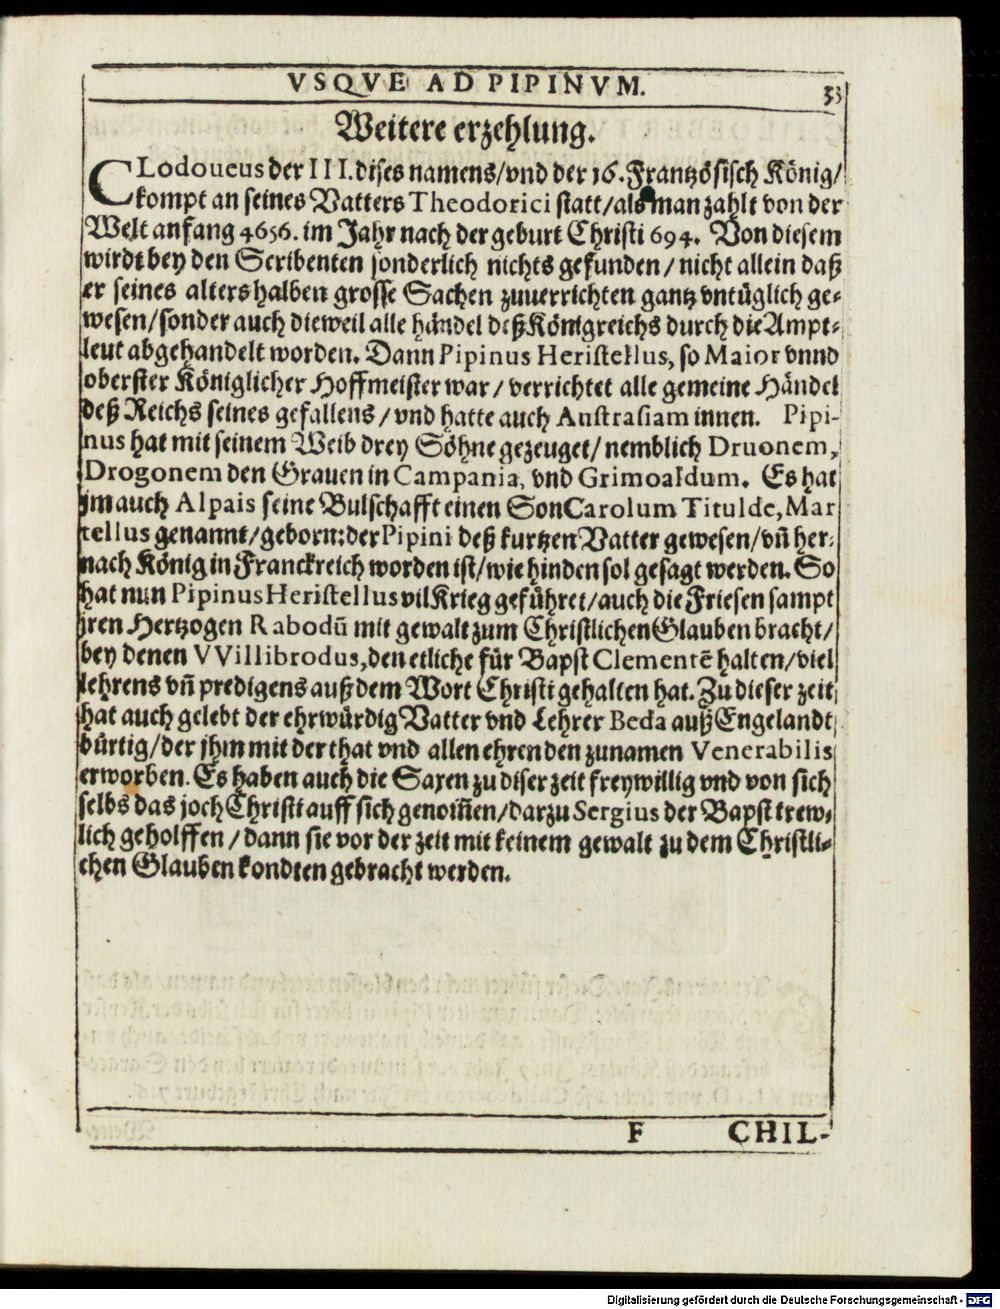 VSQVE AD PIPINVM. 53
Weitere erzehlung.
CLodoueus der III. dises namens/vnd der 16. Frantzösisch König/
kompt an seines Vatters Theodorici statt/als man zahlt von der
Welt anfang 4656. im Jahr nach der geburt Christi 694. Von diesem
wirdt bey den Scribenten sonderlich nichts gefunden/nicht allein daß
er seines alters halben grosse Sachen zuuerrichten gantz vntüglich ge-
wesen/sonder auch dieweil alle händel deß Königreichs durch die Ampt-
leut abgehandelt worden. Dann Pipinus Heristellus, so Maior vnnd
oberster Königlicher Hoffmeister war/verrichtet alle gemeine Händel
deß Reichs seines gefallens/vnd hatte auch Austrasiam innen. Pipi-
nus hat mit seinem Weib drey Söhne gezeuget/nemblich Druonem,
Drogonem den Grauen in Campania, vnd Grimoaldum. Es hat
jm auch Alpais seine Bulschafft einen Son Carolum Titulde, Mar
tellus genannt/geborn: der Pipini deß kurtzen Vatter gewesen/vñ her-
nach König in Franckreich worden ist/wie hinden sol gesagt werden. So
hat nun Pipinus Heristellus vil Krieg geführet/auch die Friesen sampt
jren Hertzogen Rabodũ mit gewalt zum Christlichen Glauben bracht/
bey denen VVillibrodus, den etliche für Bapst Clementẽ halten/viel
lehrens vñ predigens auß dem Wort Christi gehalten hat. Zu dieser zeit
hat auch gelebt der ehrwürdig Vatter vnd Lehrer Beda auß Engelandt
bürtig/der jhm mit der that vnd allen ehren den zunamen Venerabilis
erworben. Es haben auch die Saxen zu diser zeit freywillig vnd von sich
selbs das joch Christi auff sich genom̃en/darzu Sergius der Bapst trew-
lich geholffen/dann sie vor der zeit mit keinem gewalt zu dem Christli-
chen Glauben kondten gebracht werden.
F CHIL-
Digitalisierung gefördert durch die Deutsche Forschungsgemeinschaft - DFG